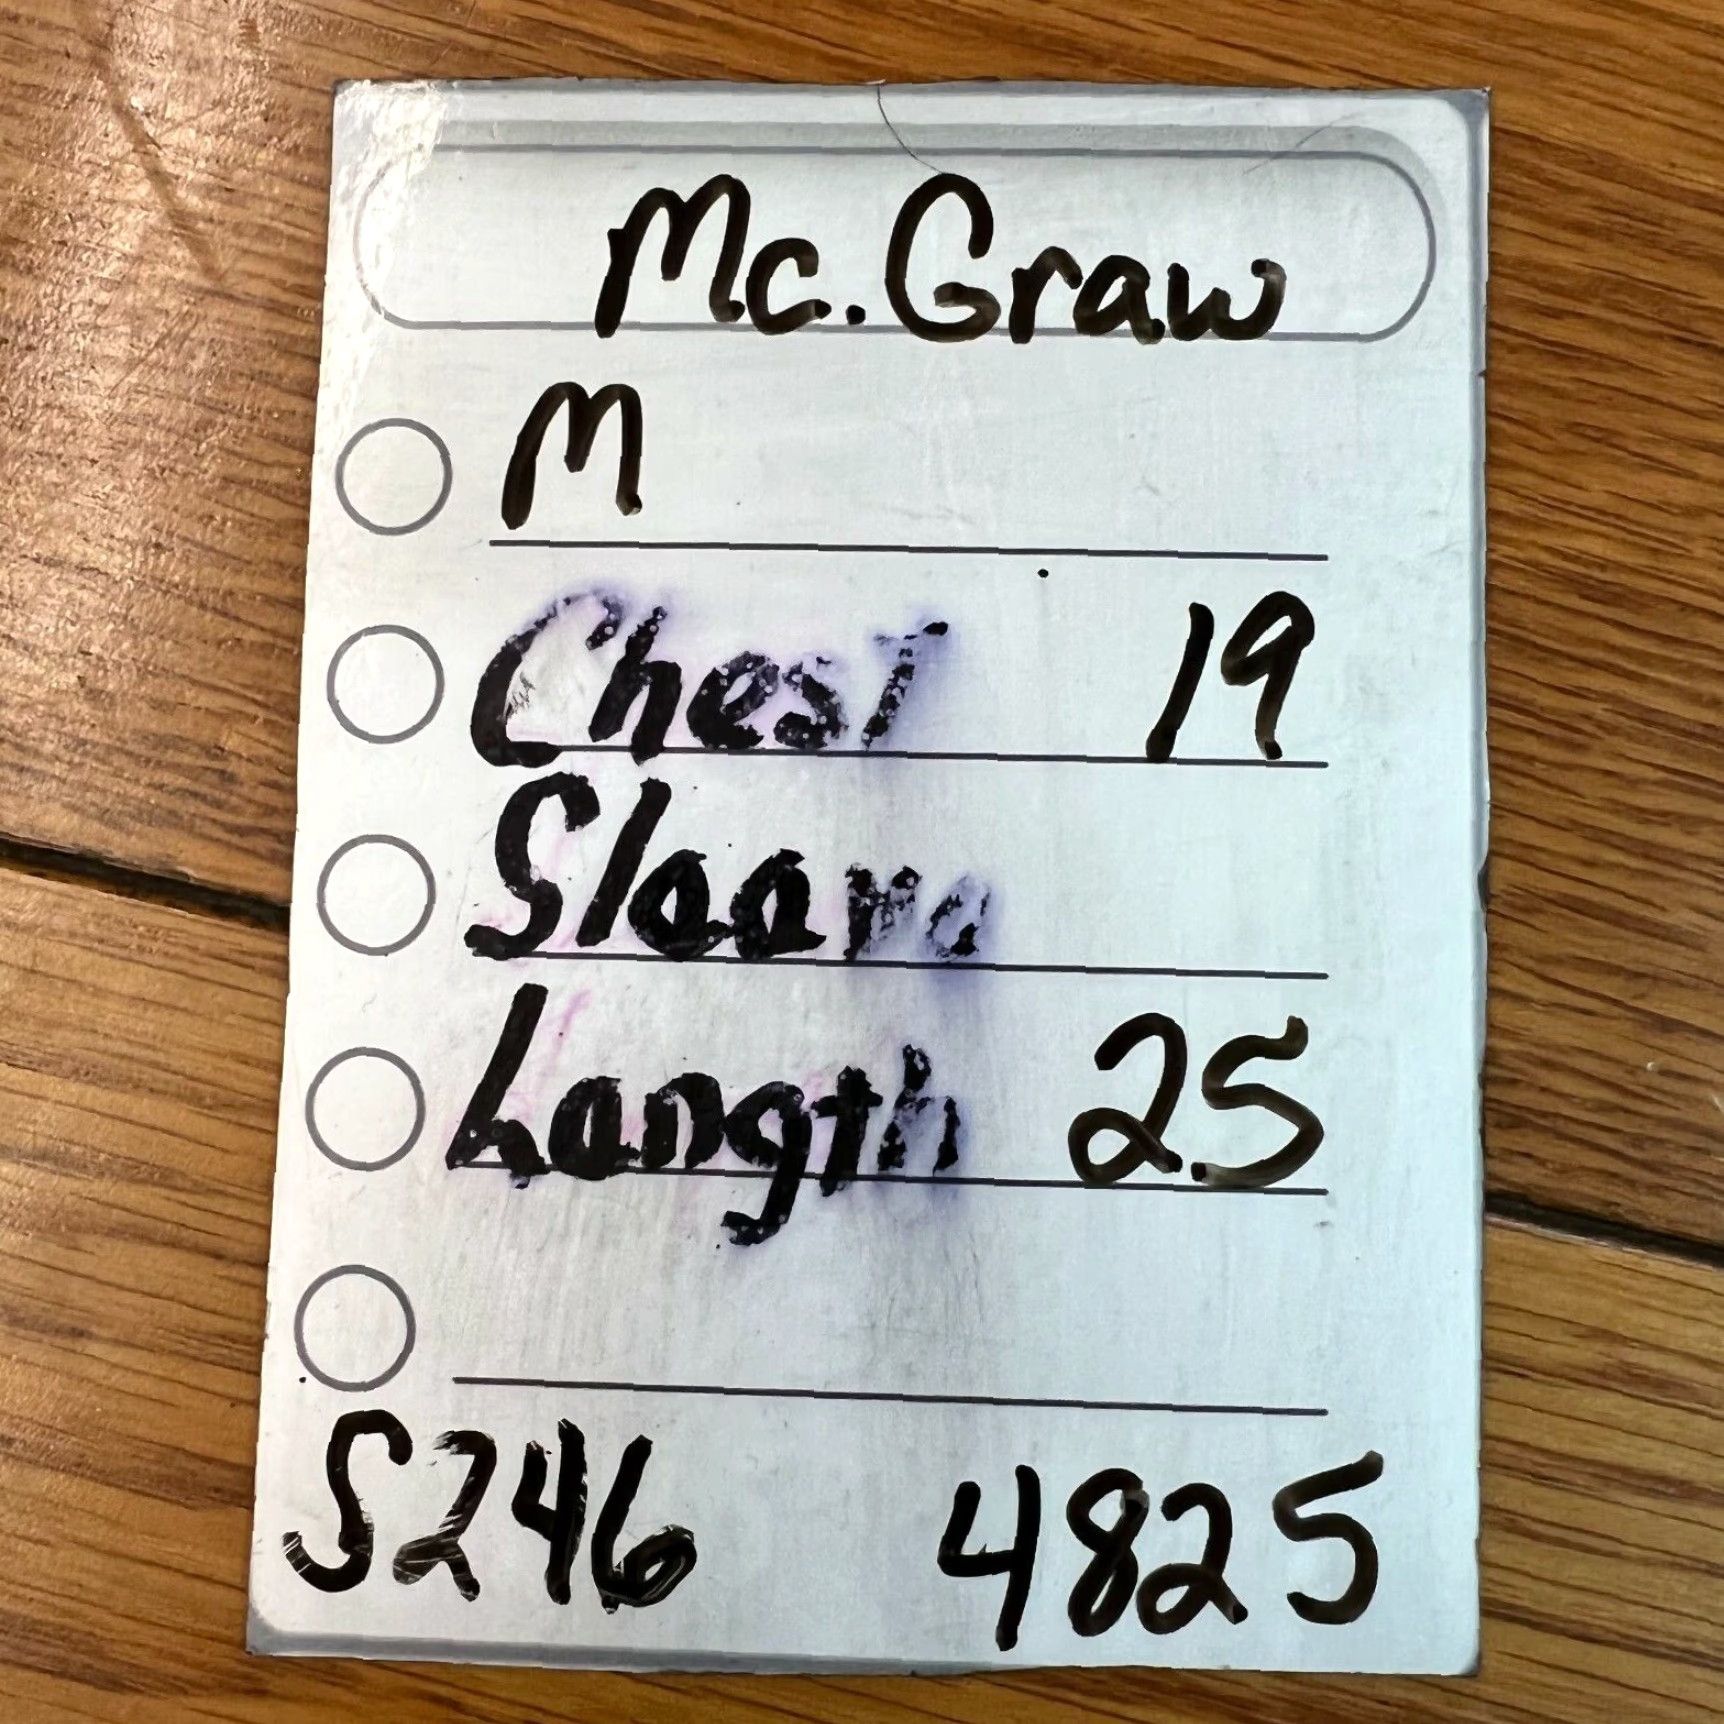 Mc.Graw
M
Chest 19
Sleeve
Length 25
S246 4825